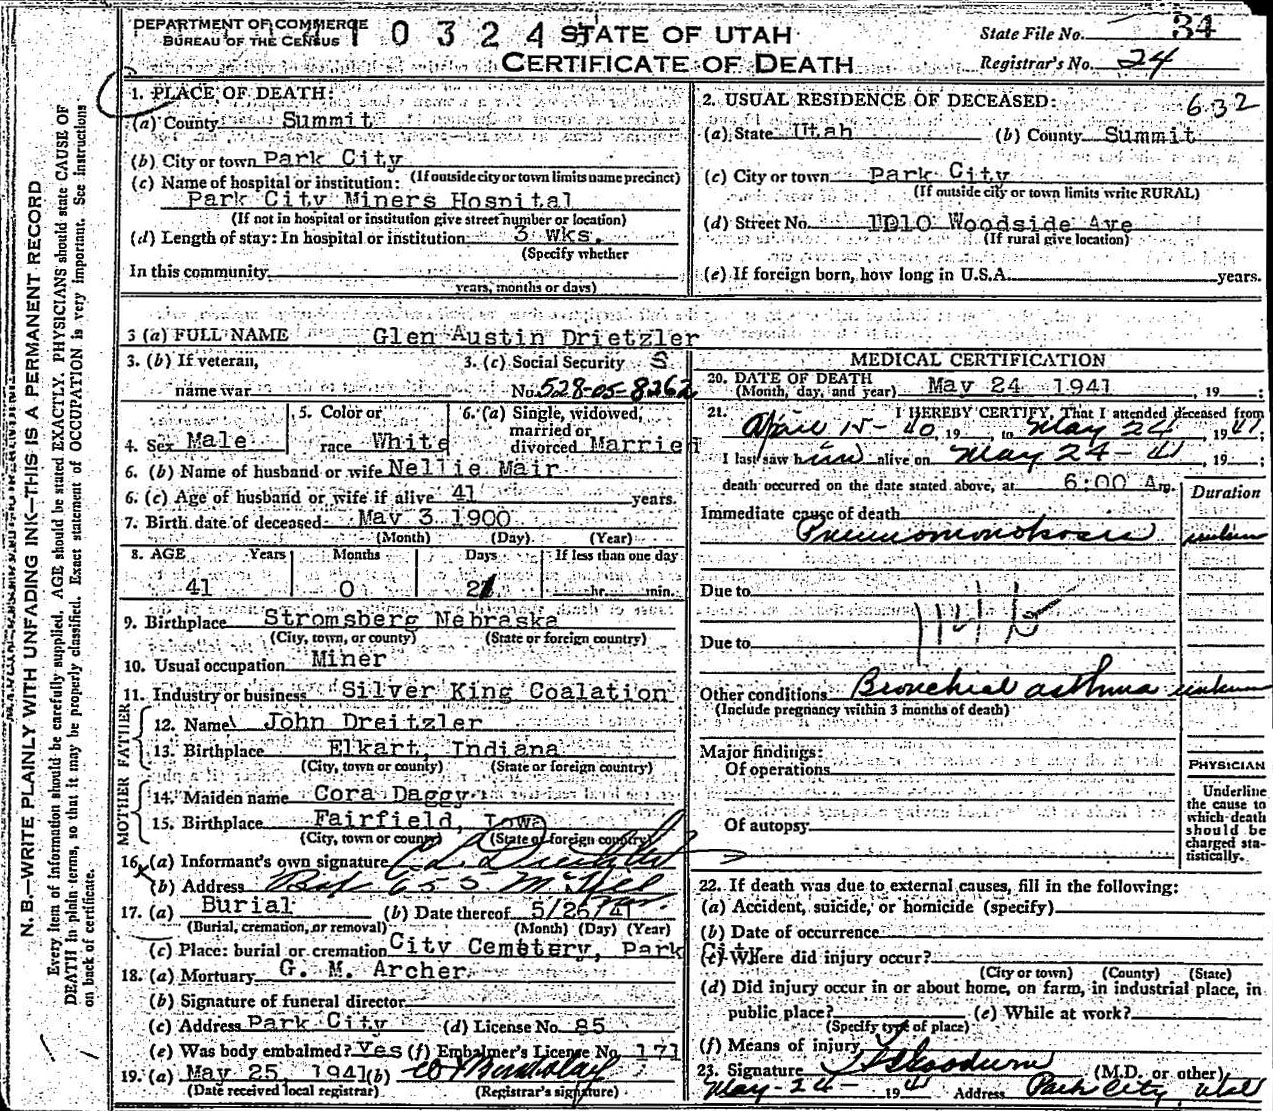 DEPARTMENT OF COMMERCE
BUREAU OF THE CENSUS
STATE OF UTAH
CERTIFICATE OF DEATH
State File No. 34
Registrar's No. 24
N. B.—WRITE PLAINLY WITH UNFADING INK—THIS IS A PERMANENT RECORD
Every item of information should be carefully supplied. AGE should be stated EXACTLY. PHYSICIANS should state CAUSE OF
DEATH in plain terms, so that it may be properly classified. Exact statement of OCCUPATION is very important. See instructions
on back of certificate.
1. PLACE OF DEATH:
(a) County Summit
(b) City or town Park City
(If outside city or town limits name precinct)
(c) Name of hospital or institution:
Park City Miners Hospital
(If not in hospital or institution give street number or location)
(d) Length of stay: In hospital or institution 3 wks.
(Specify whether
In this community
years, months or days)
2. USUAL RESIDENCE OF DECEASED: 632
(a) State Utah (b) County Summit
(c) City or town Park City
(If outside city or town limits write RURAL)
(d) Street No. 1010 Woodside Ave
(If rural give location)
(e) If foreign born, how long in U.S.A. years.
3 (a) FULL NAME Glen Austin Drietzler
3. (b) If veteran, 3. (c) Social Security S
name war No. 528-05-8262
4. Sex Male 5. Color or race White 6. (a) Single, widowed, married or divorced Married
6. (b) Name of husband or wife Nellie Mair
6. (c) Age of husband or wife if alive 41 years.
7. Birth date of deceased May 3 1900
(Month) (Day) (Year)
8. AGE Years Months Days If less than one day
41 0 21 hr. min.
9. Birthplace Stromsberg Nebraska
(City, town, or county) (State or foreign country)
10. Usual occupation Miner
11. Industry or business Silver King Coalation
FATHER
12. Name John Dreitzler
13. Birthplace Elkart, Indiana
(City, town or county) (State or foreign country)
MOTHER
14. Maiden name Cora Daggy
15. Birthplace Fairfield, Iowa
(City, town or county) (State or foreign country)
16. (a) Informant's own signature
(b) Address Box 655 McGill Nev.
17. (a) Burial (b) Date thereof 5/26/41
(Burial, cremation, or removal) (Month) (Day) (Year)
(c) Place: burial or cremation City Cemetery, Park City
18. (a) Mortuary G. M. Archer
(b) Signature of funeral director
(c) Address Park City (d) License No. 85
(e) Was body embalmed? Yes (f) Embalmer's License No. 171
19. (a) May 25, 1941 (b)
(Date received local registrar) (Registrar's signature)
MEDICAL CERTIFICATION
20. DATE OF DEATH
(Month, day, and year) May 24 1941, 19 ;
21. I HEREBY CERTIFY, That I attended deceased from
April 15-40, 19 , to May 24, 1941;
I last saw him alive on May 24-41, 19 ;
death occurred on the date stated above, at 6:00 Am. Duration
Immediate cause of death
Pneumonokosis unknown
Due to
Due to
Other conditions Bronchial asthma unknown
(Include pregnancy within 3 months of death)
Major findings:
Of operations
Of autopsy
PHYSICIAN
Underline
the cause to
which death
should be
charged sta-
tistically.
22. If death was due to external causes, fill in the following:
(a) Accident, suicide, or homicide (specify)
(b) Date of occurrence
(c) Where did injury occur?
(City or town) (County) (State)
(d) Did injury occur in or about home, on farm, in industrial place, in
public place? (e) While at work?
(Specify type of place)
(f) Means of injury
23. Signature (M.D. or other)
May-24- 1941 Address Park City, Utah